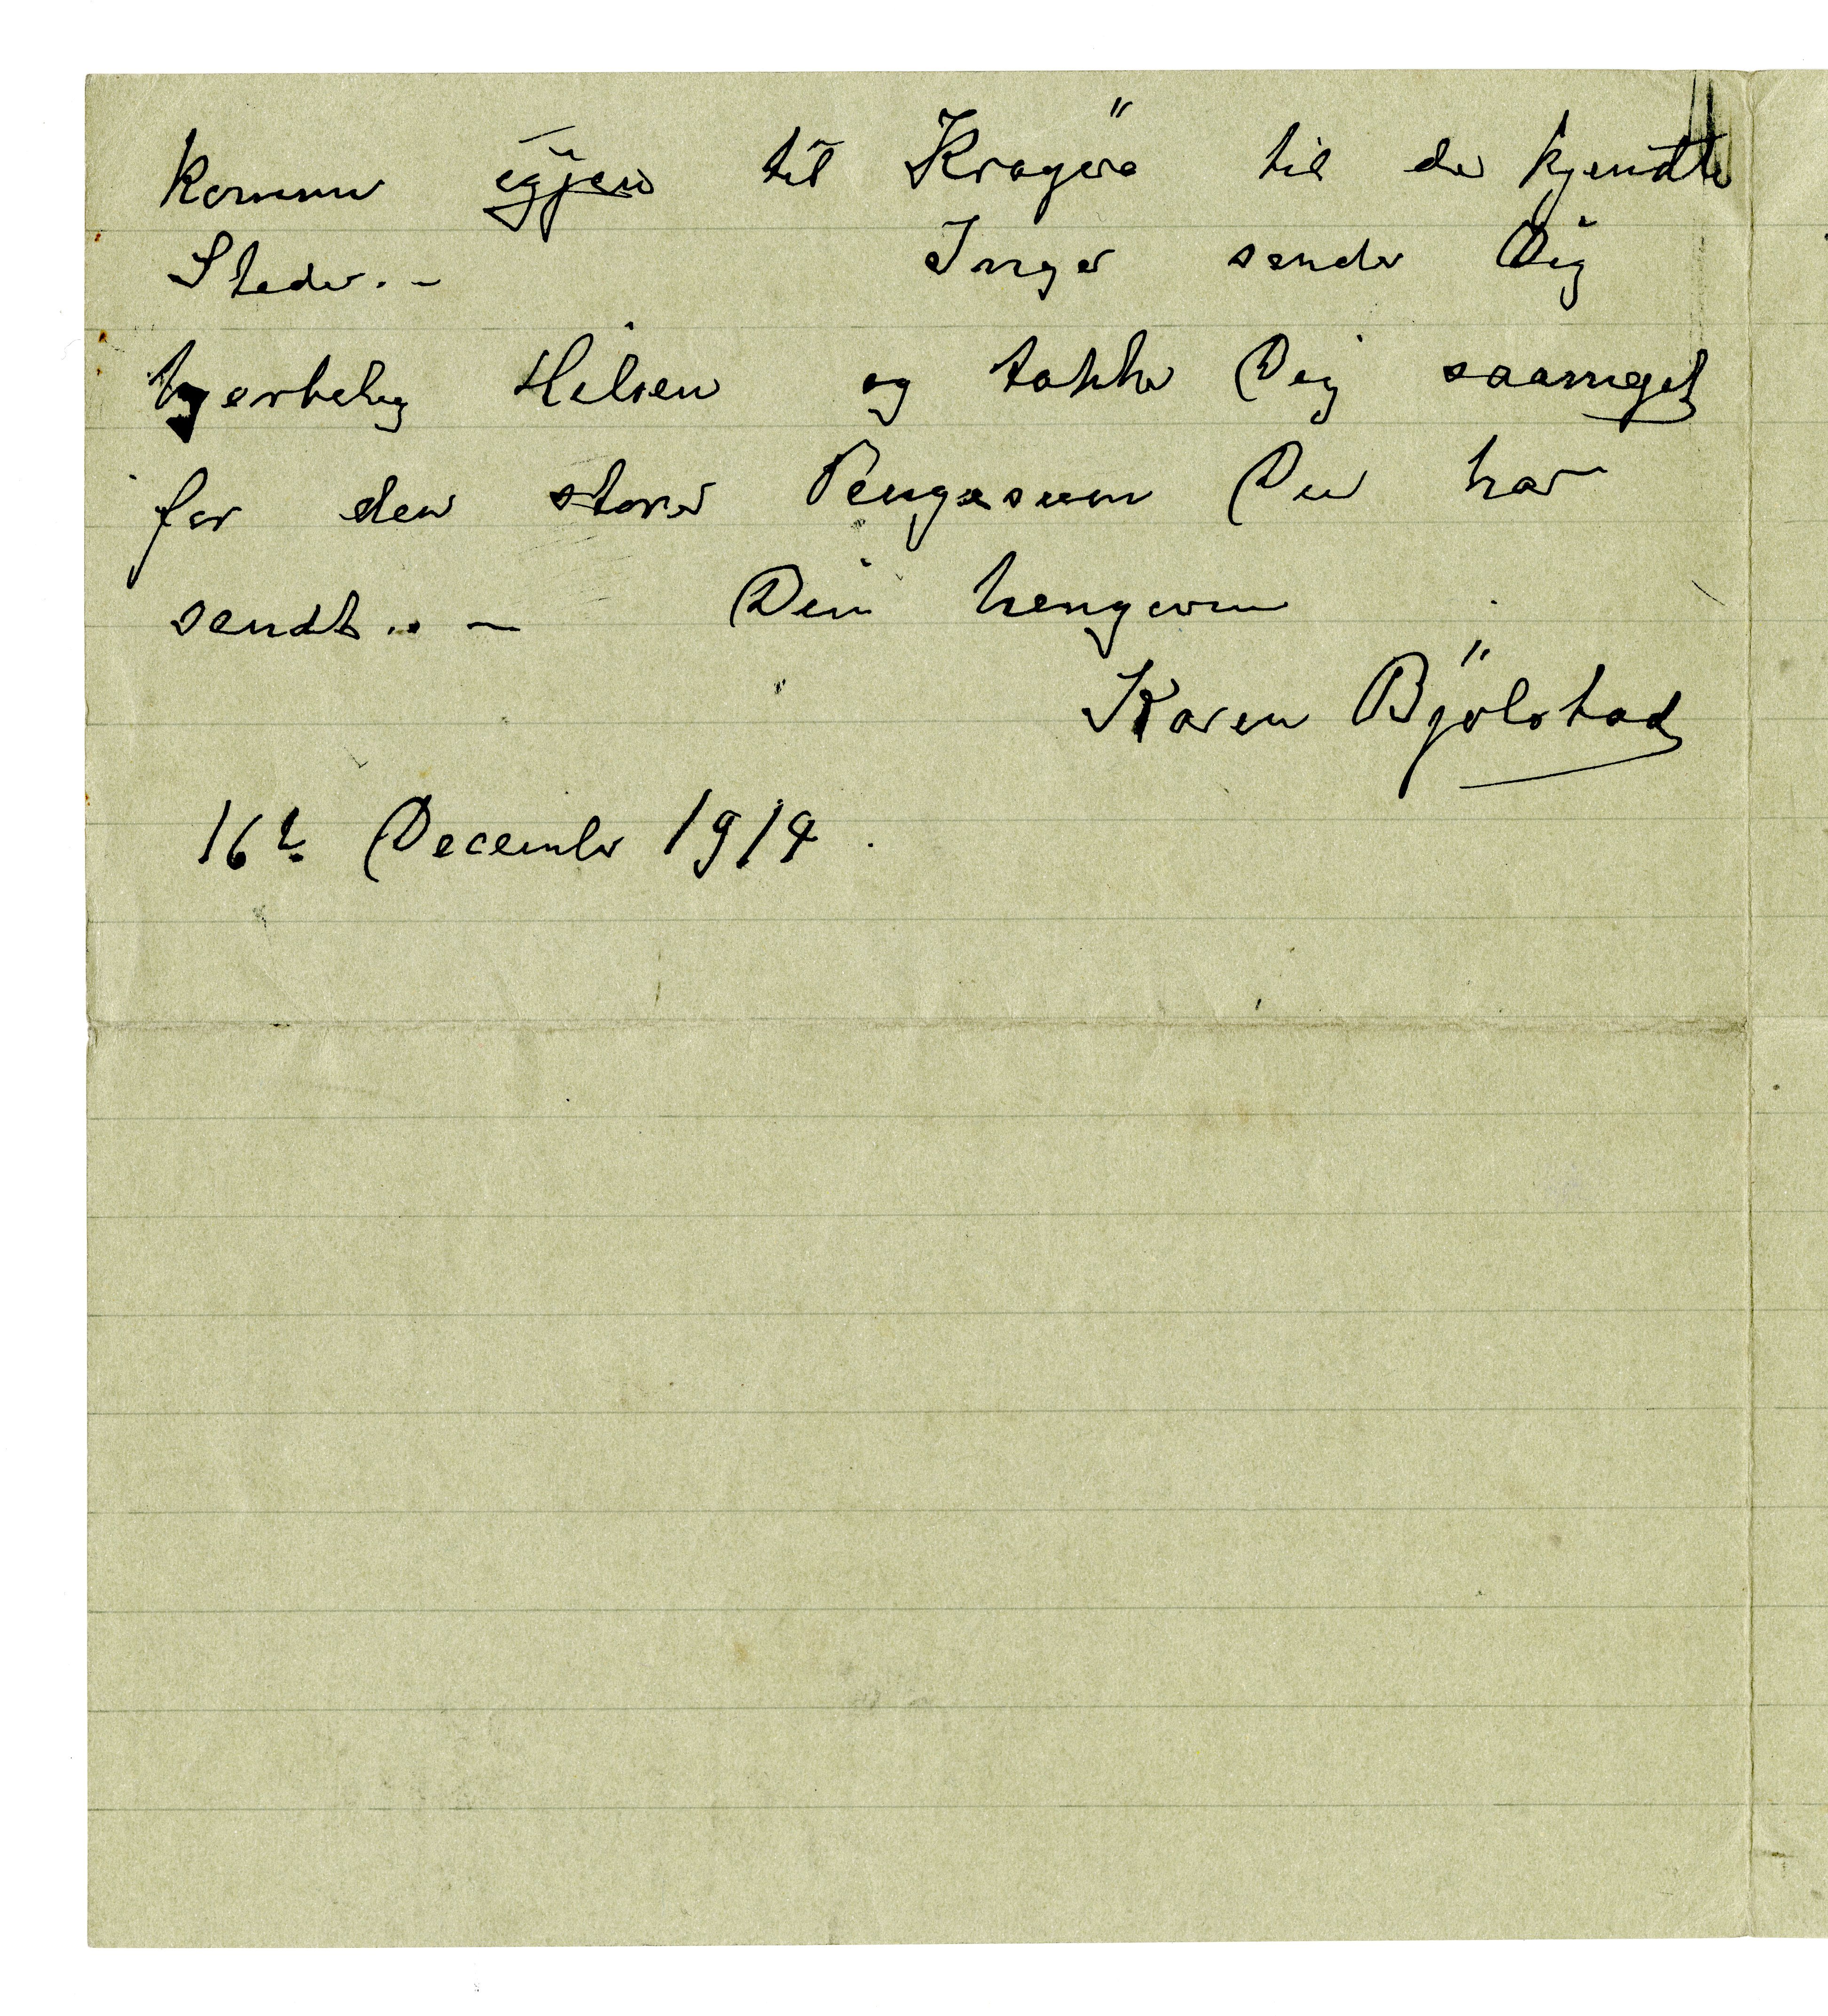 kommer igjen til Kragerö til de kjendte
Steder. -
Inger sender Dig
hjertelig Hilsen og takker Dig saameget
for den store Pengesum Du har
sendt.. -
Din hengivne
Karen Bjölstad
16de December 1914.